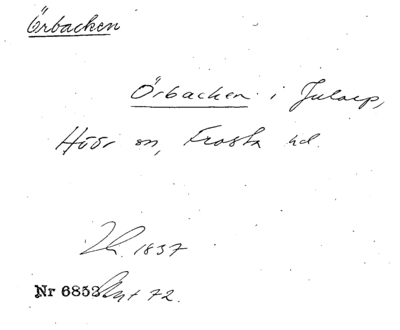 Örbacken
Örbacken i Jularp,
Höör sn, Frosta hd.
1837
Nr 6853 72.